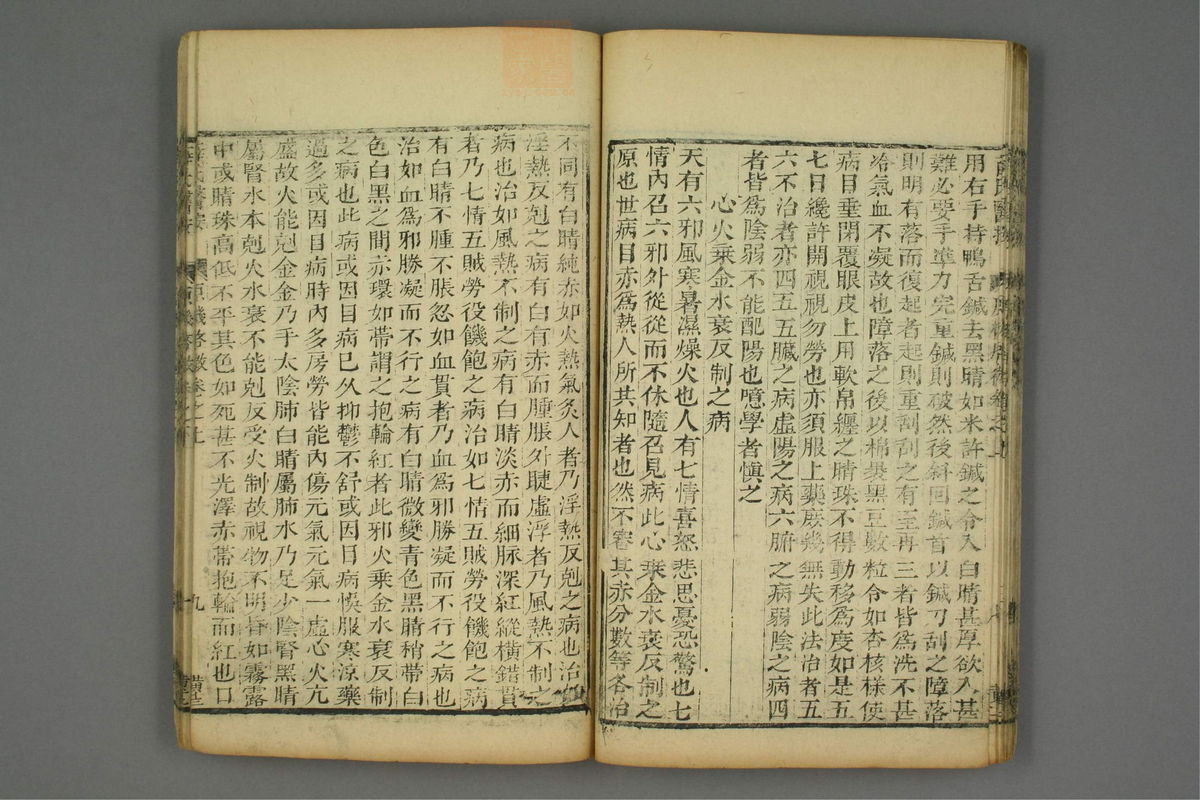 用右手持鴨舌鍼去黑睛如米許鍼之令入白睛甚厚欲入甚
難必要手準力完重鍼則破然後斜回鍼首以鍼刀刮之障落
則明有落而復起者起則重刮刮之有至再三者皆為洗不甚
冷氣血不凝故也障落之後以棉裹黑豆數粒令如杏核樣使
病目垂閉覆眼皮上用軟帛纏之睛珠不得動移為度如是五
七日纔許開視視勿勞也亦須服上藥庶幾無失此法治者五
六不治者亦四五五臟之病虛陽之病六腑之病弱陰之病四
者皆為陰弱不能配陽也噫學者慎之
心火乗金水衰反制之病
天有六邪風寒暑濕燥火也人有七情喜怒悲思憂恐驚也七
情內召六邪外從從而不休隨召見病此心乗金水衰反制之
原也世病目赤為熱人所共知者也然不審其赤分數等各治
不同有白睛純赤如火熱氣炙人者乃淫熱反剋之病也治如
淫熱反剋之病有白有赤而腫脹外睫虛浮者乃風熱不制之
病也治如風熱不制之病有白睛淡赤而細脉深紅縱橫錯貫
者乃七情五賊勞役饑飽之病治如七情五賊勞役饑飽之病
有白睛不腫不脹忽如血貫者乃血為邪勝凝而不行之病也
治如血為邪勝凝而不行之病有白睛微變青色黑睛稍帶白
色白黑之間赤環如帶謂之抱輪紅者此邪火乗金水衰反制
之病也此病或因目病已久抑鬱不舒或因目病悮服寒涼藥
過多或因目病時內多房勞皆能內傷元氣元氣一虛心火亢
盛故火能剋金金乃手太陰肺白睛屬肺水乃足少陰腎黑睛
屬腎水本剋火水衰不能剋反受火制故視物不明昏如霧露
中或睛珠高低不平其色如死甚不光澤赤帶抱輪而紅也口
薛氏醫按 原機啓微卷之上 九